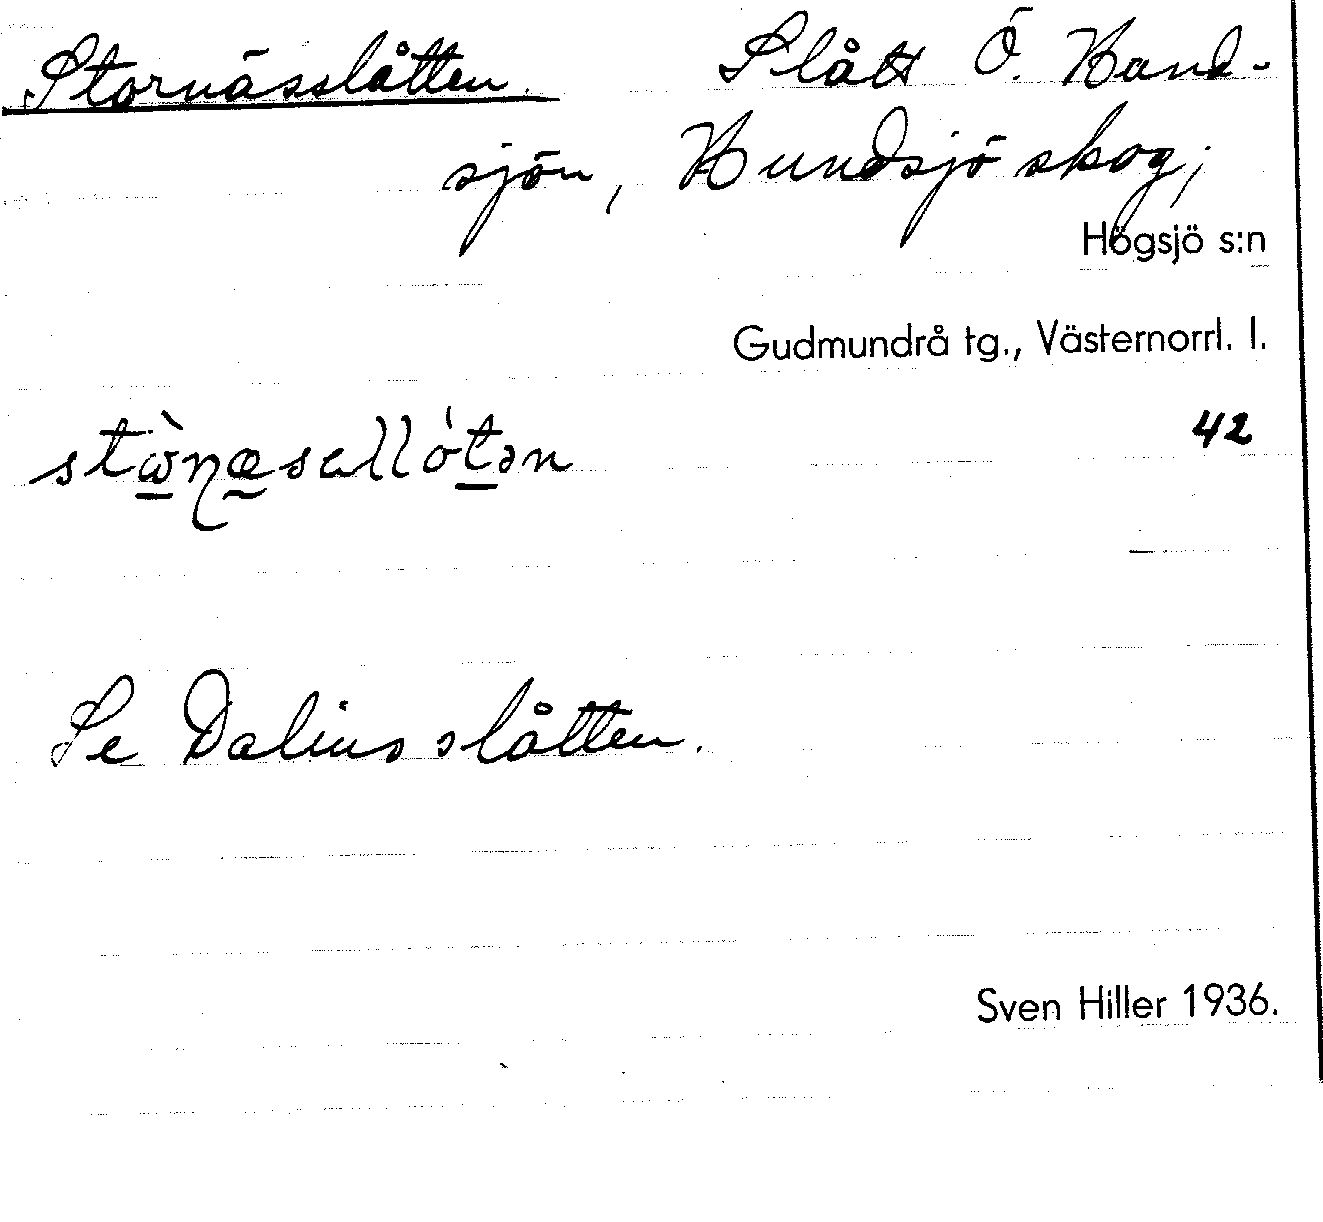 Stornässlåtten. Slått Ö. Hand-
sjön, Hundsjö skog;
Högsjö s:n
Gudmundrå tg., Västernorrl. l.
42
Se Dalins slåtten.
Sven Hiller 1936.